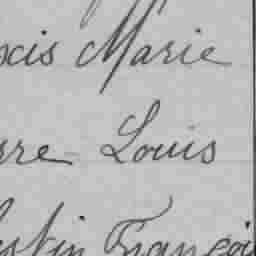 xis Marie
rre Louis
estin Françoi